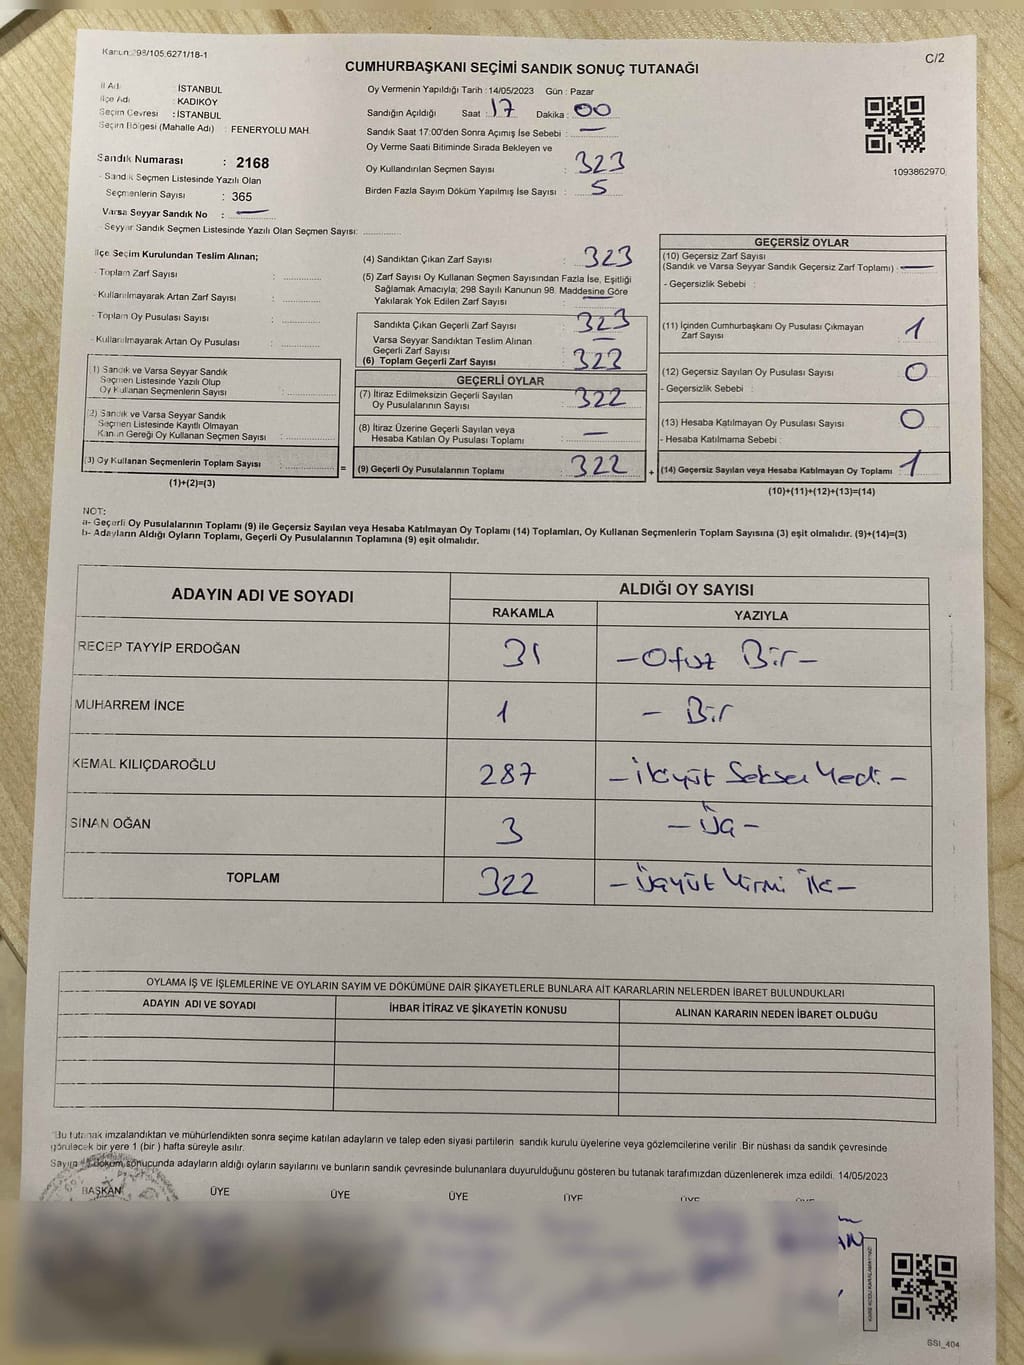 Kanun:298/105;6271/18-1
C/2
CUMHURBAŞKANI SEÇİMİ SANDIK SONUÇ TUTANAĞI
İl Adı : İSTANBUL
İlçe Adı : KADIKÖY
Seçim Çevresi : İSTANBUL
Seçim Bölgesi (Mahalle Adı) : FENERYOLU MAH.
Sandık Numarası : 2168
- Sandık Seçmen Listesinde Yazılı Olan
Seçmenlerin Sayısı : 365
Varsa Seyyar Sandık No : —
- Seyyar Sandık Seçmen Listesinde Yazılı Olan Seçmen Sayısı: ............
Oy Vermenin Yapıldığı Tarih : 14/05/2023 Gün : Pazar
Sandığın Açıldığı Saat : 17 Dakika : 00
Sandık Saat 17:00'den Sonra Açımış İse Sebebi : —
Oy Verme Saati Bitiminde Sırada Bekleyen ve
Oy Kullandırılan Seçmen Sayısı : 323
Birden Fazla Sayım Döküm Yapılmış İse Sayısı : 5
1093862970
İlçe Seçim Kurulundan Teslim Alınan;
- Toplam Zarf Sayısı :
- Kullanılmayarak Artan Zarf Sayısı :
- Toplam Oy Pusulası Sayısı :
- Kullanılmayarak Artan Oy Pusulası :
(1) Sandık ve Varsa Seyyar Sandık
Seçmen Listesinde Yazılı Olup
Oy Kullanan Seçmenlerin Sayısı :
(2) Sandık ve Varsa Seyyar Sandık
Seçmen Listesinde Kayıtlı Olmayan
Kanun Gereği Oy Kullanan Seçmen Sayısı :
(3) Oy Kullanan Seçmenlerin Toplam Sayısı :
(1)+(2)=(3)
(4) Sandıktan Çıkan Zarf Sayısı : 323
(5) Zarf Sayısı Oy Kullanan Seçmen Sayısından Fazla İse, Eşitliği
Sağlamak Amacıyla; 298 Sayılı Kanunun 98. Maddesine Göre
Yakılarak Yok Edilen Zarf Sayısı : —
Sandıkta Çıkan Geçerli Zarf Sayısı : 323
Varsa Seyyar Sandıktan Teslim Alınan
Geçerli Zarf Sayısı : —
(6) Toplam Geçerli Zarf Sayısı : 323
GEÇERLİ OYLAR
(7) İtiraz Edilmeksizin Geçerli Sayılan
Oy Pusulalarının Sayısı : 322
(8) İtiraz Üzerine Geçerli Sayılan veya
Hesaba Katılan Oy Pusulası Toplamı : —
= (9) Geçerli Oy Pusulalarının Toplamı : 322
GEÇERSİZ OYLAR
(10) Geçersiz Zarf Sayısı
(Sandık ve Varsa Seyyar Sandık Geçersiz Zarf Toplamı) : —
- Geçersizlik Sebebi :
(11) İçinden Cumhurbaşkanı Oy Pusulası Çıkmayan
Zarf Sayısı : 1
(12) Geçersiz Sayılan Oy Pusulası Sayısı : 0
- Geçersizlik Sebebi :
(13) Hesaba Katılmayan Oy Pusulası Sayısı : 0
- Hesaba Katılmama Sebebi :
+ (14) Geçersiz Sayılan veya Hesaba Katılmayan Oy Toplamı : 1
(10)+(11)+(12)+(13)=(14)
NOT:
a- Geçerli Oy Pusulalarının Toplamı (9) ile Geçersiz Sayılan veya Hesaba Katılmayan Oy Toplamı (14) Toplamları, Oy Kullanan Seçmenlerin Toplam Sayısına (3) eşit olmalıdır. (9)+(14)=(3)
b- Adayların Aldığı Oyların Toplamı, Geçerli Oy Pusulalarının Toplamına (9) eşit olmalıdır.
ADAYIN ADI VE SOYADI ALDIĞI OY SAYISI
RAKAMLA YAZIYLA
RECEP TAYYİP ERDOĞAN 31 - Otuz Bir -
MUHARREM İNCE 1 - Bir
KEMAL KILIÇDAROĞLU 287 - İkiyüz Seksen Yedi -
SİNAN OĞAN 3 - Üç -
TOPLAM 322 - Üçyüz Yirmi İki -
OYLAMA İŞ VE İŞLEMLERİNE VE OYLARIN SAYIM VE DÖKÜMÜNE DAİR ŞİKAYETLERLE BUNLARA AİT KARARLARIN NELERDEN İBARET BULUNDUKLARI
ADAYIN ADI VE SOYADI İHBAR İTİRAZ VE ŞİKAYETİN KONUSU ALINAN KARARIN NEDEN İBARET OLDUĞU
*Bu tutanak imzalandıktan ve mühürlendikten sonra seçime katılan adayların ve talep eden siyasi partilerin sandık kurulu üyelerine veya gözlemcilerine verilir .Bir nüshası da sandık çevresinde
görülecek bir yere 1 (bir ) hafta süreyle asılır.
Sayım ve döküm sonucunda adayların aldığı oyların sayılarını ve bunların sandık çevresinde bulunanlara duyurulduğunu gösteren bu tutanak tarafımızdan düzenlenerek imza edildi. 14/05/2023
BAŞKAN ÜYE ÜYE ÜYE ÜYE ÜYE ÜYE
KARE KODU KARALAMAYINIZ!
SSI_404